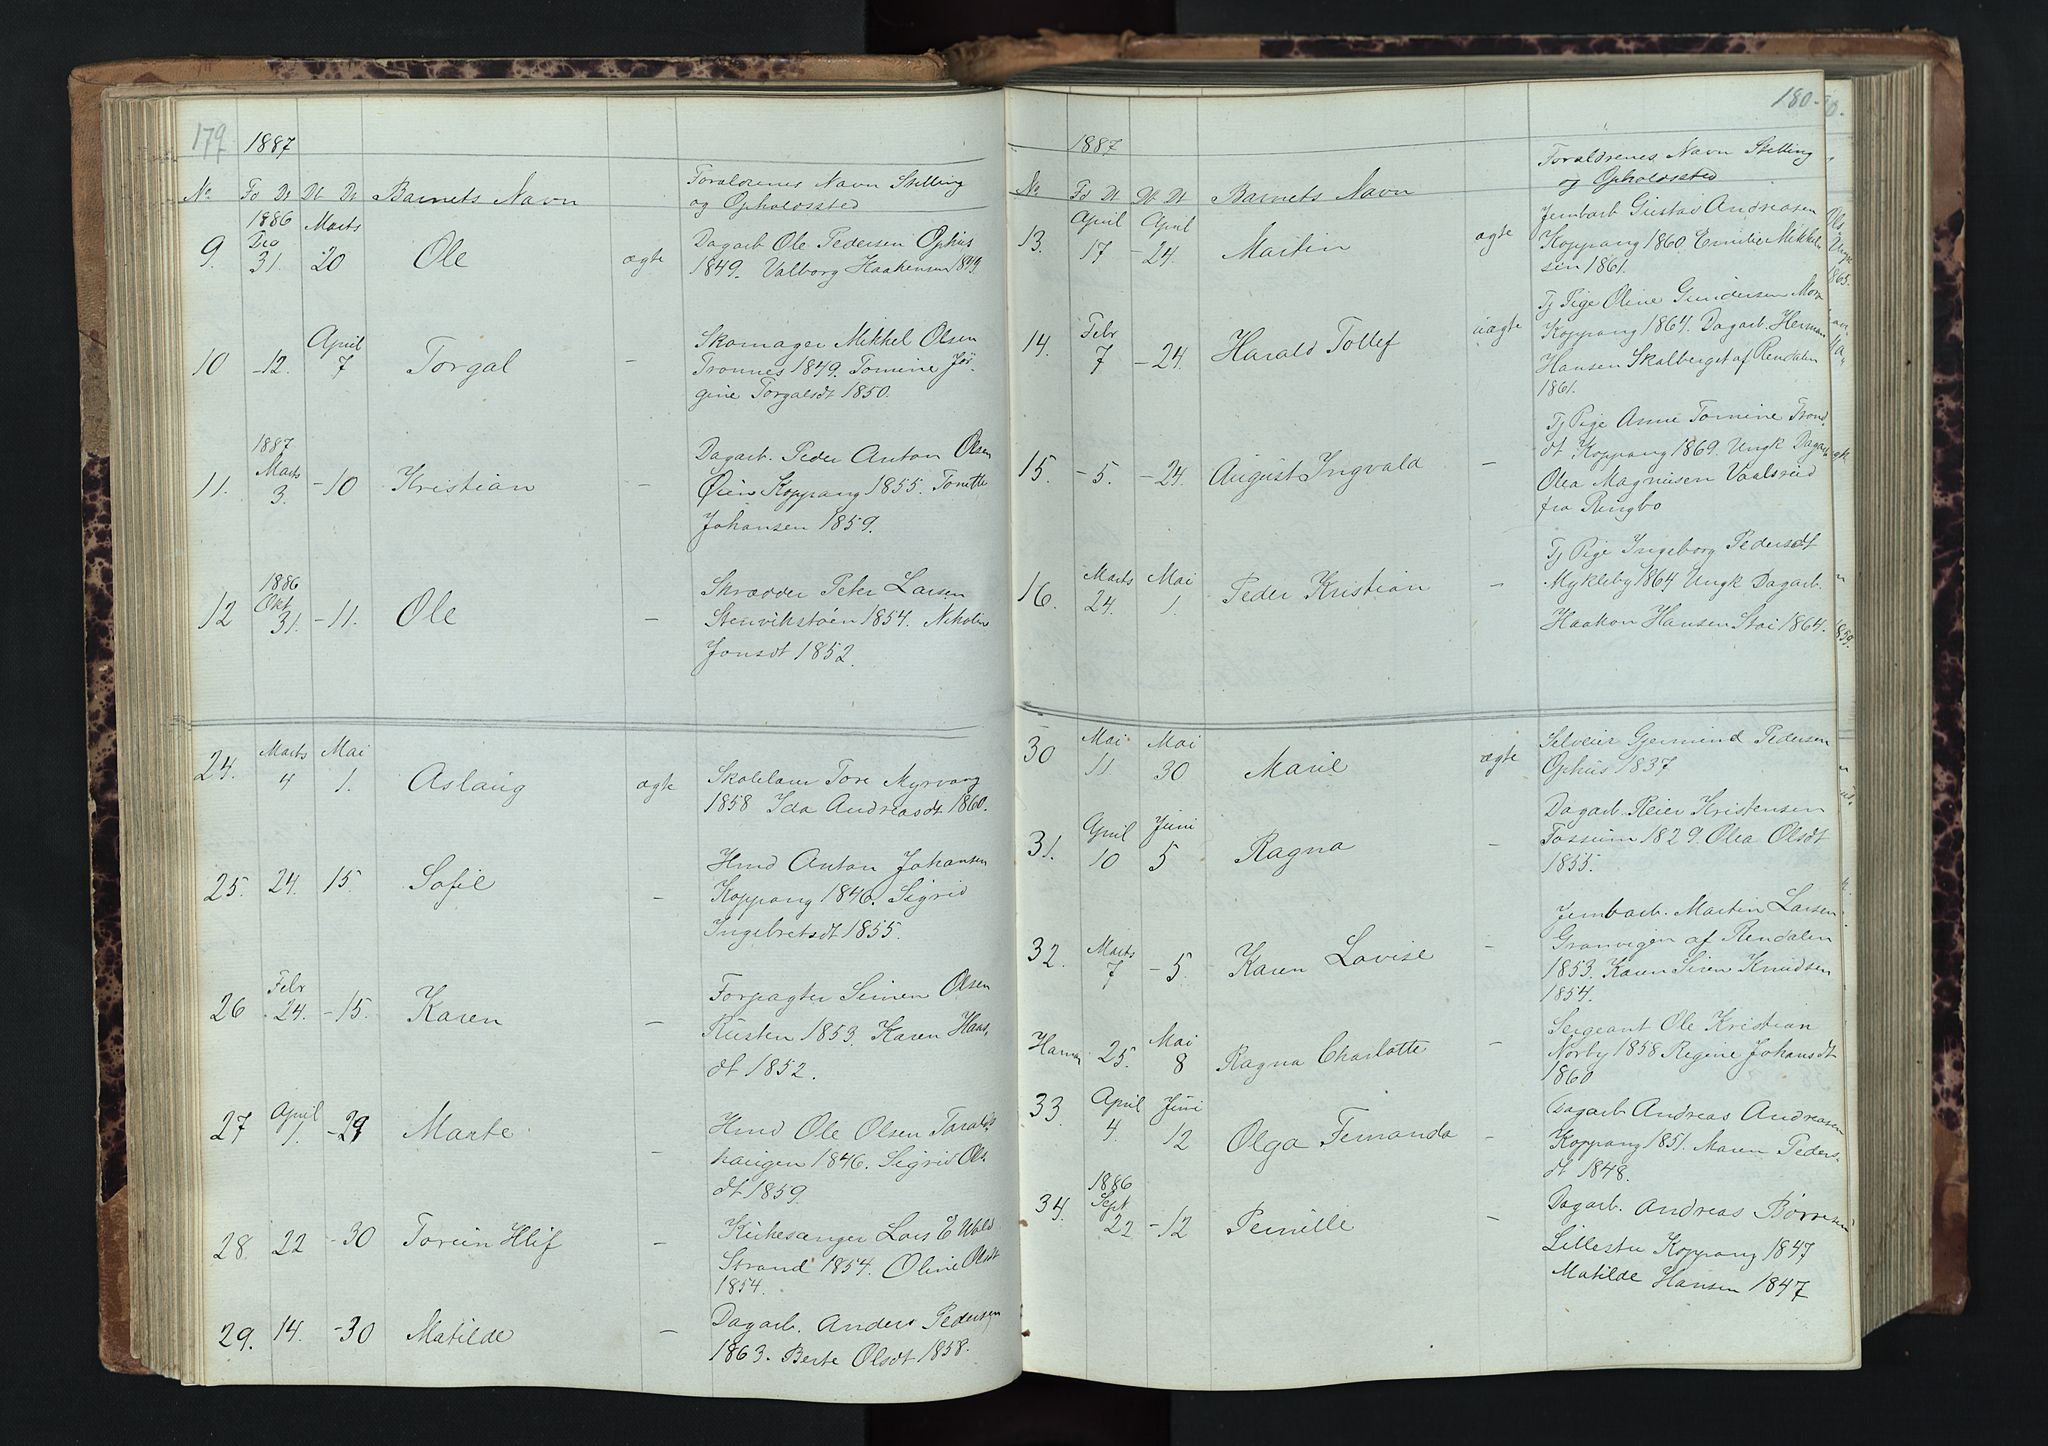 179 1887
No Fd Dt Db Dt Barnets Navn Foraldrenes Navn Stilling
og Opholdssted
9. 1886 Dec 31. Marts 20 Ole ægte Dagarb Ole Pedersen Ophus
1849. Valborg Haakensen 1849
10 -12. April 7 Torgal - Skomager Mikkel Olsen
Tronnes 1849. Tomine Jør-
gine Torgalsdt 1850.
11. 1887 Marts 3. -10 Kristian - Dagarb. Peder Anton Olsen
Øien Koppang 1855. Tonette
Johansen 1859.
12 1886 Okt 31. -11. Ole - Skrædder Peter Larsen
Stenvikstøen 1854. Nikolin
Jonsdt 1852.
24. Marts 4 Mai 1. Aslaug ægte Skolelær Tore Myrvang
1858 Ida Andreasdt 1860.
25. 24. 15. Sofie - Hmd Anton Johansen
Koppang 1846. Sigrid
Ingebretsdt 1855.
26 Febr 24. -15. Karen - Forpagter Simen Olsen
Rusten 1853. Karen Hans
dt 1852.
27 April 1. -29 Marte - Hmd Ole Olsen
haugen 1846. Sigrid Ols
dt 1859.
28 22 -30 Torein Hlif - Kirkesanger Lars E
Strand 1854. Oline Olsdt
1854.
29. 14. -30 Matilde - Dagarb. Anders Pedersen
1863. Berte Olsdt 1858.
180
1887
No Fd Dt Db Dt Barnets Navn Foraldrenes Navn Stilling
og Opholdssted
13. April 17 April -24. Martin ægte Jernbarb Gustav Andreasen
Koppang 1860. Emilie Mikkel
sen 1861.
14. Febr 7 -24. Harald Tollef uægte Tj Pige Oline Gundersen Mora
Koppang 1864. Dagarb. Herman
Hansen Skalberget af Rendalen
1861.
15. -5. -24. August Ingvald - Tj Pige Anne Tomine Trond
dt Koppang 1869. Ungk Dagarb
Olea Magnusen Vaalsrud
fra Ringbo
16. Marts 24. Mai 1. Peder Kristian - Tj Pige Ingeborg Pedersdt
Mykleby 1864 Ungk Dagarb.
Haakon Hansen Stai 1864.
30 Mai 11 Mai 30 Marie ægte Selveier Gjermund Pedersen
Ophus 1837
31. April 10 Juni 5 Ragna - Dagarb. Reier Kristensen
Fossum 1829. Olea Olsdt
1855.
32. Marts 7 -5. Karen Lovise - Jernbarb. Martin Larsen
Granvigen af Rendalen
1853. Karen Siren Knudsen
1854.
25. Mai 8 Ragna Charlotte - Sergeant Ole Kristian
Norby 1858 Regine Johansdt
1860
33 April 4. Juni 12 Olga Fernanda - Dagarb Andreas Andreasen
Koppang 1851. Maren Peders-
dt 1848.
34. 1886 Sept 22 -12 Pernille - Dagarb. Andreas Børresen
Lillestu Koppang 1847
Matilde Hansen 1847